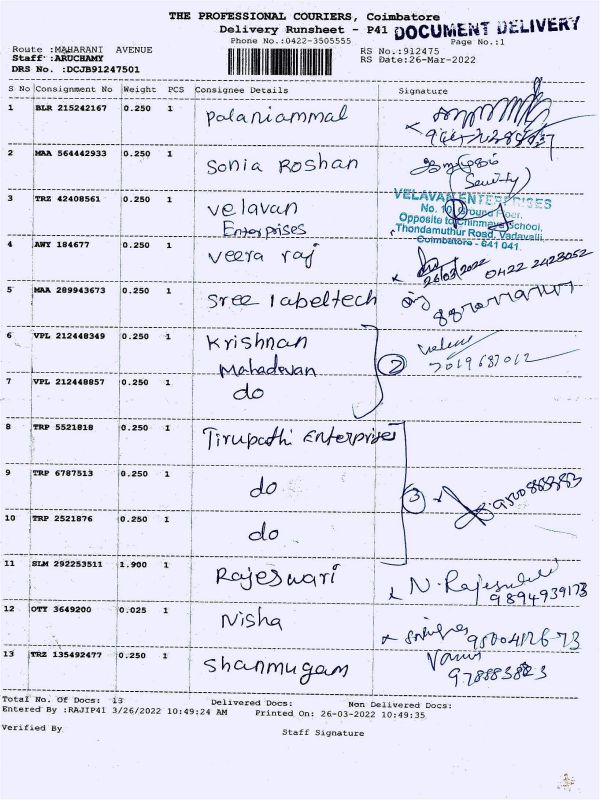 THE PROFESSIONAL COURIERS, Coimbatore
Delivery Runsheet - P41
DOCUMENT DELIVERY
Phone No.:0422-3505555
Page No.:1
Route :MAHARANI AVENUE
RS No.:912475
Staff :ARUCHAMY
RS Date:26-Mar-2022
DRS No. :DCJB91247501
S No Consignment No Weight PCS Consignee Details Signature
1 BLR 215242167 0.250 1 Palaniammal
2 MAA 564442933 0.250 1 Sonia Roshan
(Security)
3 TRZ 42408561 0.250 1 Velavan
Enterprises
VELAVAN ENTERPRISES
No. 10, Ground Floor,
Opposite to Chinmaya School,
Thondamuthur Road, Vadavalli,
Coimbatore - 641 041.
4 AWY 184677 0.250 1 Veera raj
26/03/2022 0422 2423052
5 MAA 289943673 0.250 1 Sree labeltech
6 VPL 212448349 0.250 1 Krishnan
Mahadevan
2
7 VPL 212448857 0.250 1 do
7019687012
8 TRP 5521818 0.250 1 Tirupathi Enterprises
9 TRP 6787513 0.250 1 do
3
10 TRP 2521876 0.250 1 do
11 SLM 292253511 1.900 1 Rajeswari
9894939173
12 OTY 3649200 0.025 1 Nisha
13 TRZ 135492477 0.250 1 Shanmugam
Total No. Of Docs: 13 Delivered Docs: Non Delivered Docs:
Entered By :RAJIP41 3/26/2022 10:49:24 AM Printed On: 26-03-2022 10:49:35
Verified By
Staff Signature